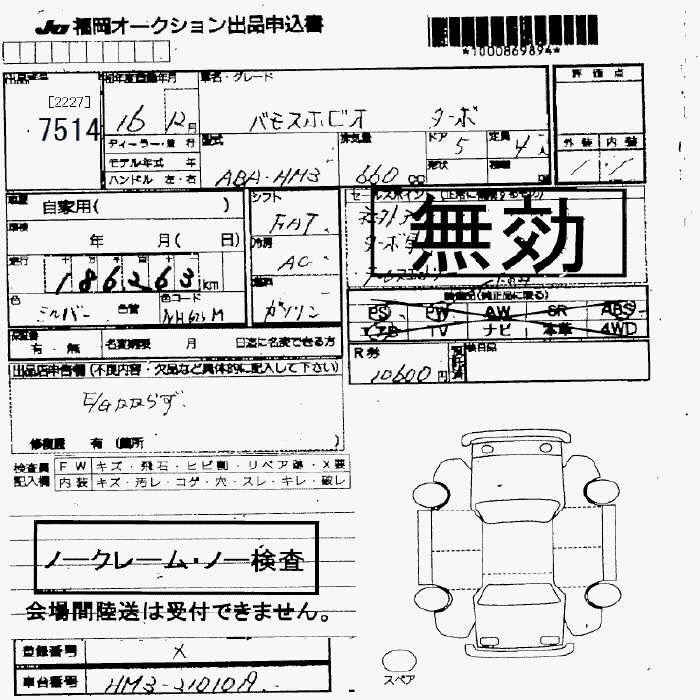 JU 福岡オークション出品申込書
*1000869894*
出品番号
[2227]
7514
初年度登録年月
16 12月
車名・グレード
バモスホビオ ターボ
評価点
外装 内装
ディーラー・並行
モデル年式 年
ハンドル 左・右
型式
ABA-HM3
排気量
660 cc
ドア 5
形状
定員 4人
積載
車歴 自家用( )
車検 年 月( 日)
走行 186263 km
色 シルバー 色替
色コード NH623M
シフト FAT
冷房 AC
燃料 ガソリン
セールスポイント (正常に機能するもの)
無効
装備品(純正品に限る)
PS PW AW SR ABS
エアB TV ナビ 本革 4WD
保証書 有・無
名変期限 月 日迄に名変できる方
R券 10600円
預託済
検査品
出品店申告欄(不良内容・欠品など具体的に記入して下さい)
E/Gカカラず.
修復歴 有(箇所 )
検査員記入欄
FW キズ・飛石・ヒビ割・リペア跡・X要
内装 キズ・汚レ・コゲ・穴・スレ・キレ・破レ
ノークレーム・ノー検査
会場間陸送は受付できません。
登録番号 X
車台番号 HM3-2101019
スペア